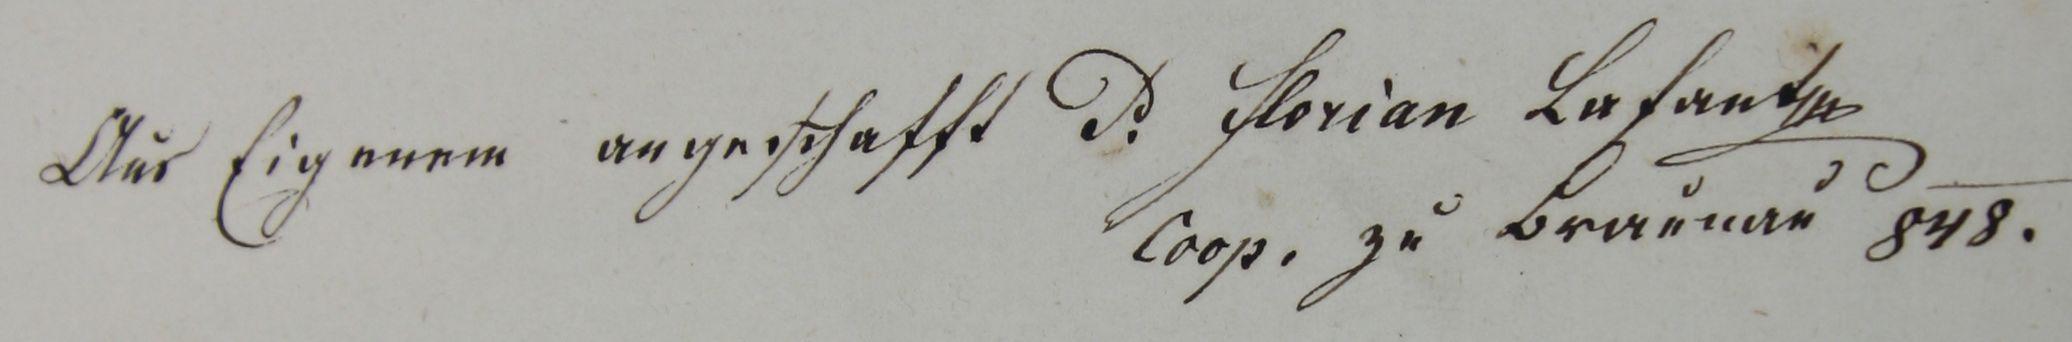 Aus Eigenem angeschafft P. Florian Lafantz
Coop. zu Braunau 848.